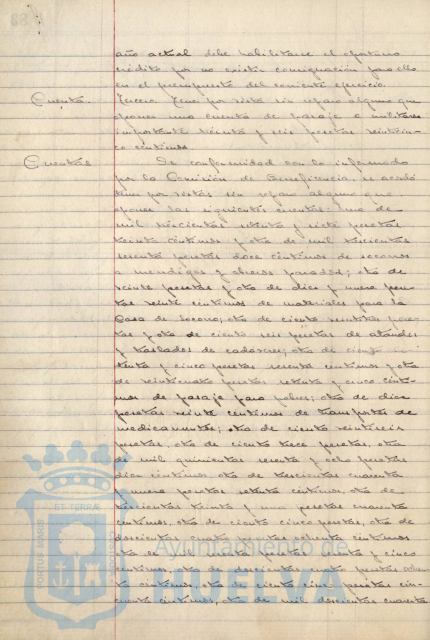 año actual debe habilitarse el oportuno
crédito por no existir consignación para ello
en el presupuesto del corriente ejercicio.
Cuenta. Tercero. Tener por vista sin reparo alguno que
oponer una cuenta de pasaje a militares
importante treinta y seis pesetas veinticin-
co céntimos
Cuentas De conformidad con lo informado
por la Comisión de Beneficencia, se acordó
tener por vistas sin reparo alguno que
oponer las siguientes cuentas: una de
mil trescientas setenta y siete pesetas
treinta céntimos y otra de mil trescientas
sesenta pesetas doce céntimos de socorros
a mendigos y obreros parados; otra de
veinte pesetas y otra de diez y nueve pese-
tas veinte céntimos de materiales para la
Casa de Socorro; otra de ciento pese-
tas y otra de ciento seis pesetas de ataudes
y traslados de cadáveres; otra de ciento
y cinco pesetas sesenta céntimos y otra
de veinticuatro pesetas setenta y cinco cénti-
mos de pasaje para pobres; otra de diez
pesetas veinte céntimos de transportes de
medicamentos; otra de ciento veintiseis
pesetas, otra de ciento trece pesetas, otra
de mil quinientas sesenta y ocho pesetas
diez céntimos, otra de trescientas cuarenta
y nueve pesetas setenta céntimos, otra de
trescientas treinta y una pesetas cuarenta
céntimos, otra de ciento cinco pesetas, otra de
doscientas cuatro pesetas ochenta céntimos
otra de pesetas y cinco
céntimos, otra de doscientas cuatro pesetas ochen-
ta céntimos, otra de ciento cinco pesetas cin-
cuenta céntimos, otra de mil doscientas cuarenta
PORTUS MARIS
ET TERRAE
CUSTODIA
Ayuntamiento de
HUELVA